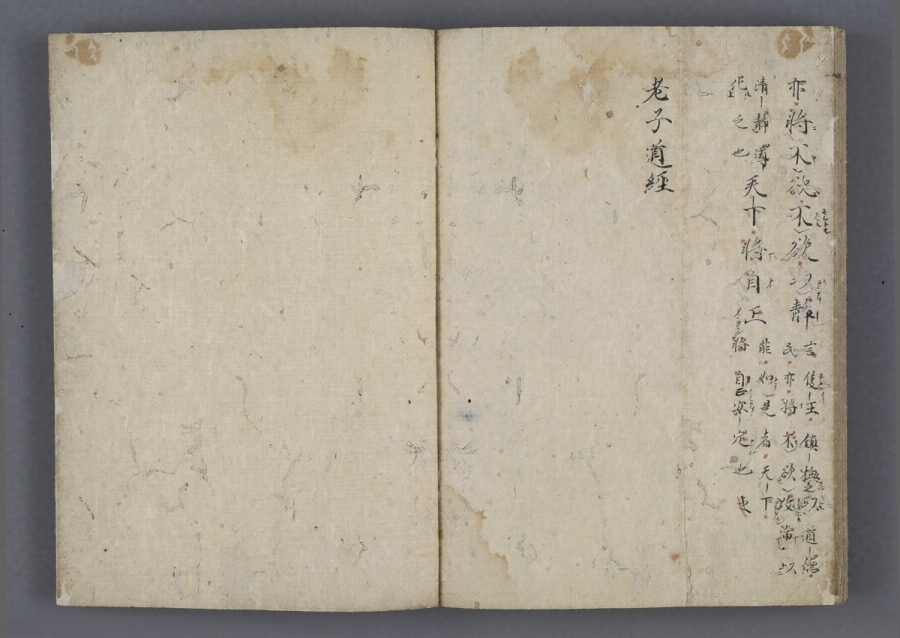 亦將不欲不欲以靜言侯王鎮撫之以道德
民亦將不欲故當以
清靜導
化之也
天下將自正能如是者天下
將自正安定也
老子道經